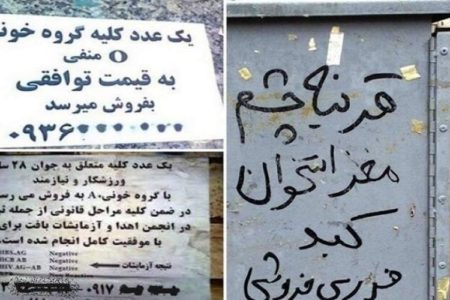 یک عدد کلیه گروه خونی
O منفی
به قیمت توافقی
بفروش میرسد
۰۹۳۶
یک عدد کلیه متعلق به جوان ۲۸
ورزشکار و نیازمند
با گروه خونی A، به فروش می رسد
در ضمن کلیه مراحل قانونی از جمله
در انجمن اهدا و آزمایشات بافت برای
با موفقیت کامل انجام شده است.
HBS.AG Negative
HCB AB Negative
HIV AG-AB Negative
نتیجه آزمایشات
۰۹۱۷
قرنیه چشم
مغز استخوان
کبد
فروشی